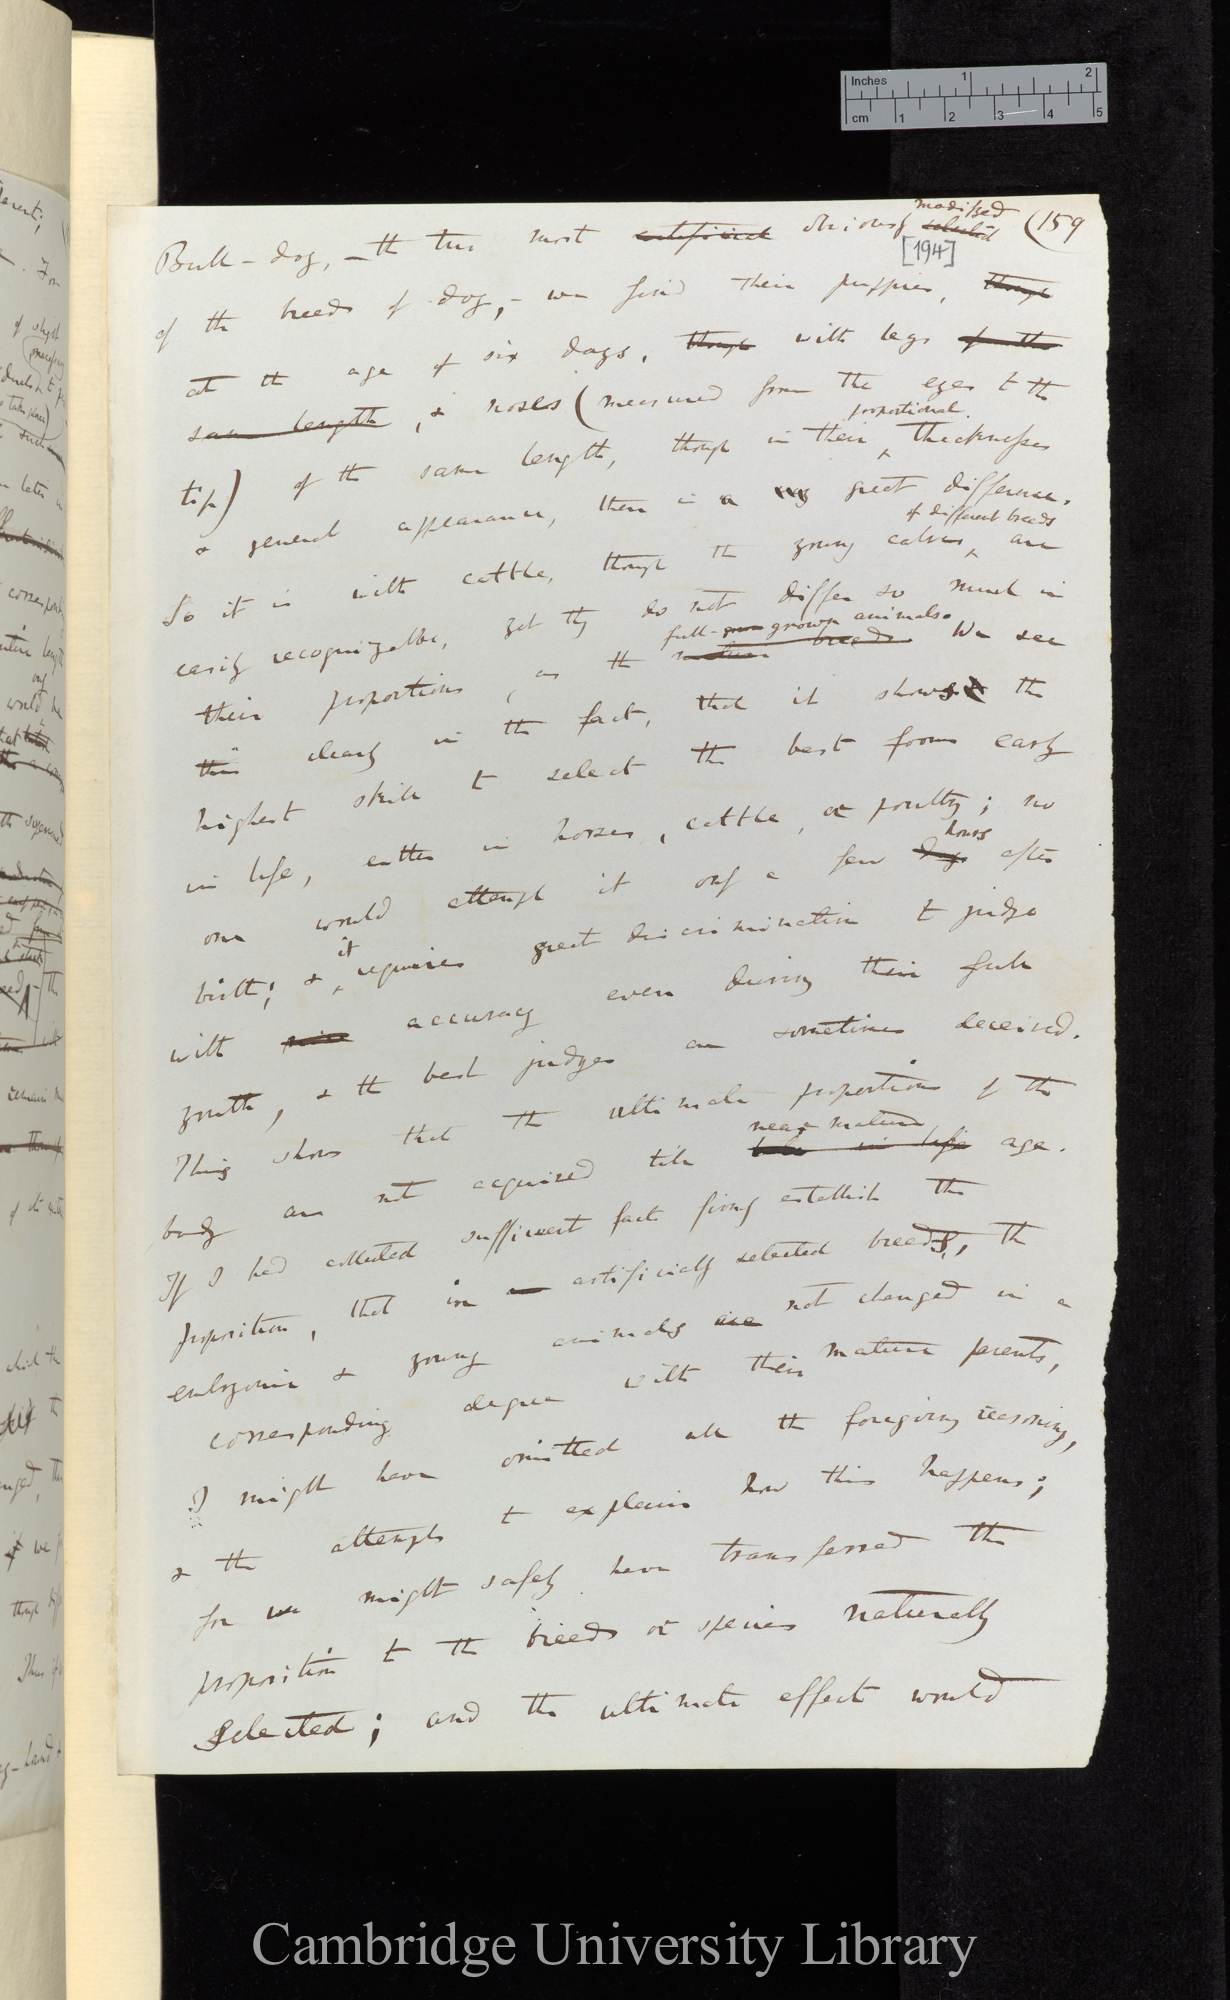 Inches 1 2
cm 1 2 3 4 5
(159
modified
Bull-dog, – the two most artificial obviously selected
[194]
of the breeds of dog, – we find their puppies, though
at the age of six days, though with legs of the
same length, & noses (measured from the eyes to the
proportional.
tip) of the same length, though in their thicknesses
& general appearance, there is a very great difference.
of different breeds
So it is with cattle, though the young calves are
easily recognizable, yet they do not differ so much in
full-grown animals.
their proportions, as the mature breeds We see
this clearly in the fact, that it shows the
highest skill to select the best forms early
in life, either in horses, cattle, or poultry; no
hours
one would attempt it only a few days after
it
birth; & requires great discrimination to judge
with accuracy even during their full
youth, & the best judges are sometimes deceived.
This shows that the ultimate proportions of the
near mature
body are not acquired till late in life age.
If I had collected sufficient facts firmly establish the
proposition, that in an artificially selected breeds, the
embryonic & young animals are not changed in a
corresponding degree with their mature parents,
I might have omitted all the foregoing reasoning,
& the attempts to explain how this happens;
for we might safely have transferred the
proposition to the breeds or species naturally
selected; and the ultimate effect would
Cambridge University Library